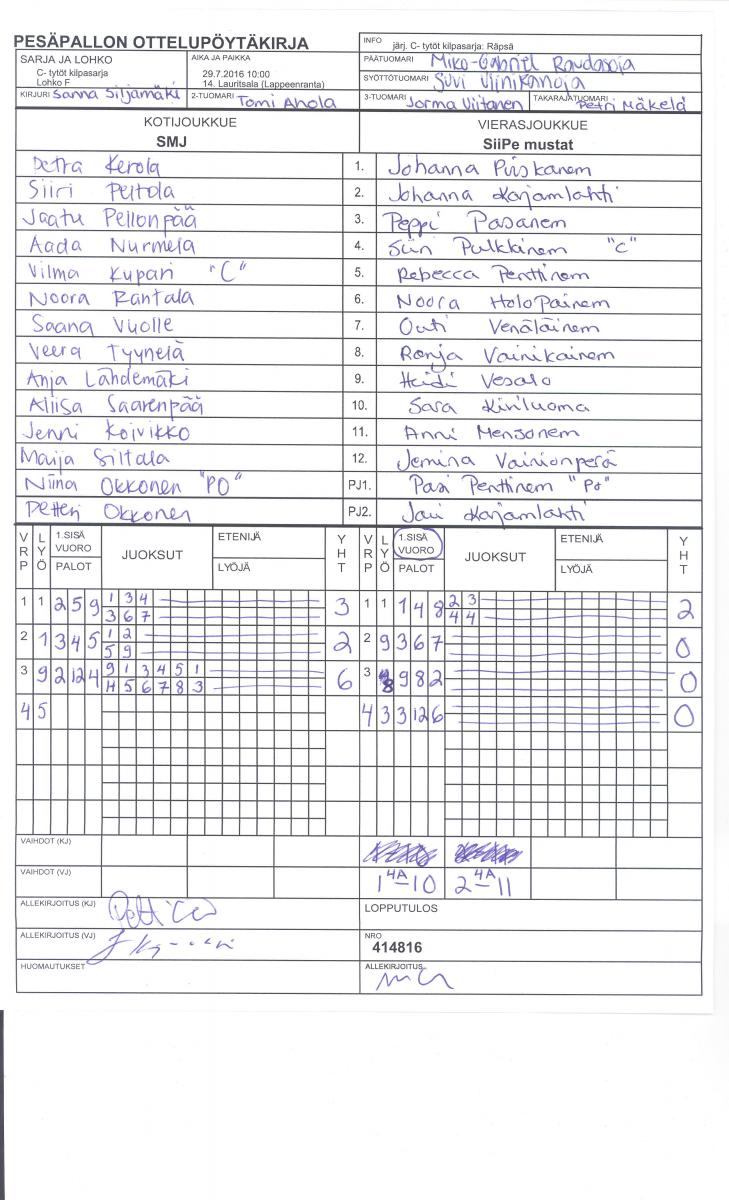 PESÄPALLON OTTELUPÖYTÄKIRJA
INFO järj. C- tytöt kilpasarja: Räpsä
SARJA JA LOHKO
C- tytöt kilpasarja
Lohko F
AIKA JA PAIKKA
29.7.2016 10:00
14. Lauritsala (Lappeenranta)
PÄÄTUOMARI Miko-Gabriel Raudasoja
SYÖTTÖTUOMARI Suvi Viinikanoja
KIRJURI Sanna Siljamäki 2-TUOMARI Tomi Ahola 3-TUOMARI Jorma Viitanen TAKARAJATUOMARI Petri Mäkelä
KOTIJOUKKUE VIERASJOUKKUE
SMJ SiiPe mustat
Petra Kerola 1. Johanna Piiskanem
Siiri Peltola 2. Johanna Karjamlahti
Jaatu Pellonpää 3. Peppi Pasanem
Aada Nurmela 4. Siiri Pulkkinem "C"
Vilma Kupari "C" 5. Rebecca Penttinem
Noora Rantala 6. Noora Holopainem
Saana Vuolle 7. Outi Venäläinem
Veera Tyynelä 8. Ronja Vainikainem
Anja Lähdemäki 9. Heidi Vesalo
Aliisa Saarenpää 10. Sara Kiviluoma
Jenni Koivikko 11. Anni Mensonem
Maija Siltala 12. Jemina Vainionperä
Niina Okkonen "PO" PJ1. Pasi Penttinem "PO"
Petteri Okkonen PJ2. Jari Karjamlahti
VRP LYÖ 1.SISÄ VUORO PALOT JUOKSUT ETENIJÄ LYÖJÄ YHT VRP LYÖ 1.SISÄ VUORO PALOT JUOKSUT ETENIJÄ LYÖJÄ YHT
1 1 2 5 9 1 3 4 3 1 1 1 4 8 2 3 2
3 6 7 4 4
2 1 3 4 5 1 2 2 2 9 3 6 7 0
5 9
3 9 2 12 4 9 1 3 4 5 1 6 3 8 9 8 2 0
H 5 6 7 8 3
4 5 4 3 3 12 6 0
VAIHDOT (KJ)
VAIHDOT (VJ) 1 4A 10 2 4A 11
ALLEKIRJOITUS (KJ)
LOPPUTULOS
ALLEKIRJOITUS (VJ)
NRO
414816
HUOMAUTUKSET
ALLEKIRJOITUS